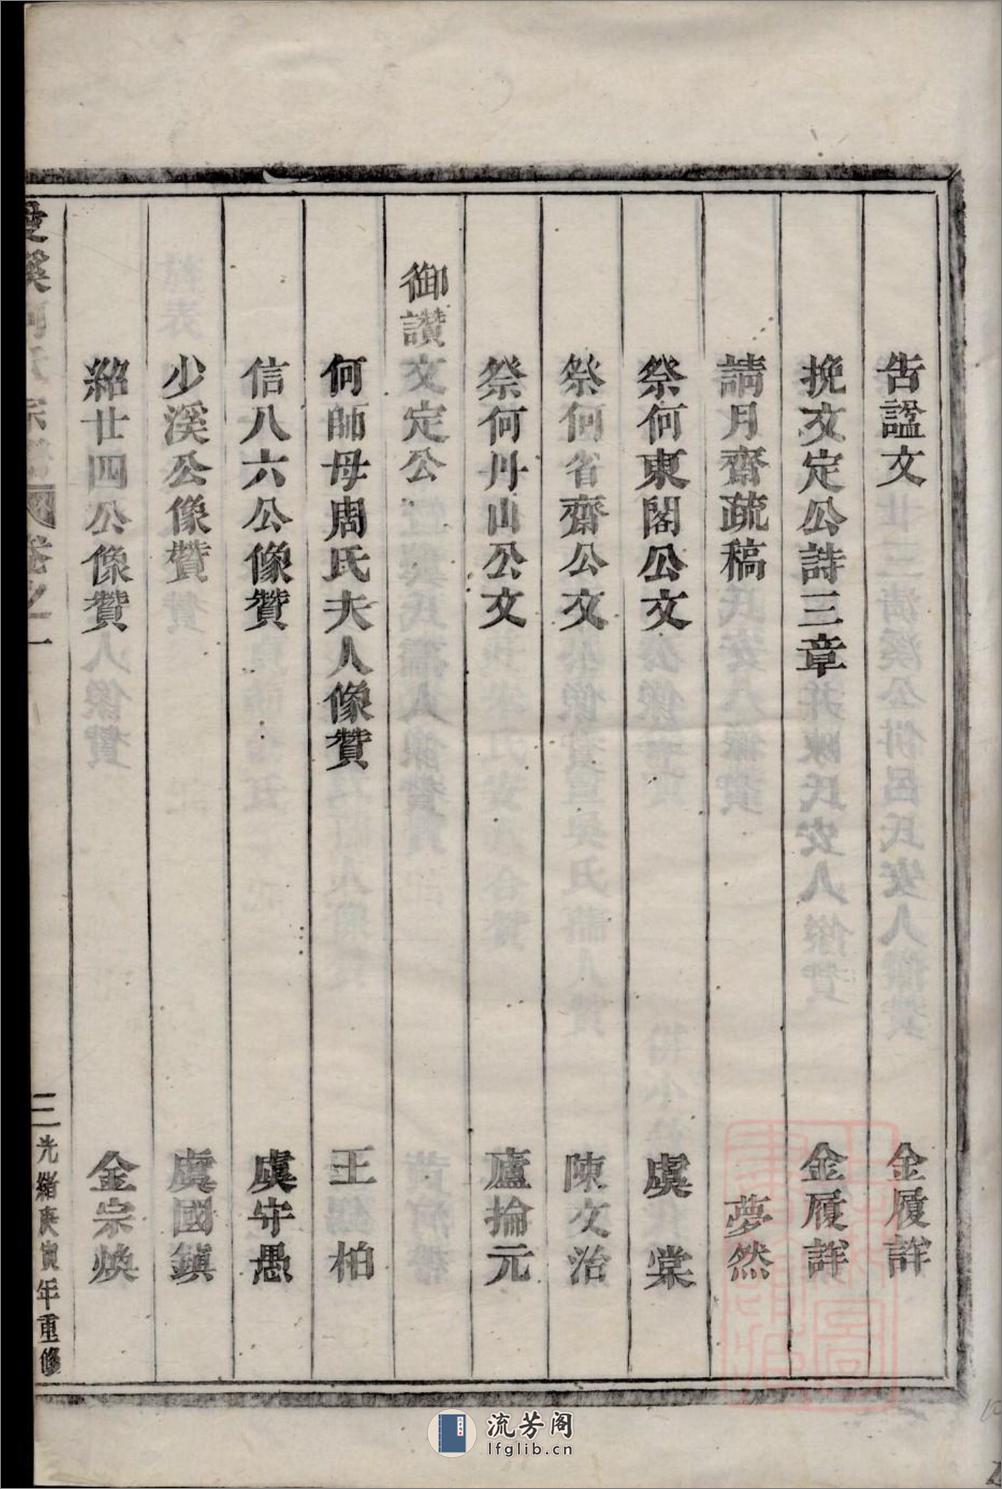 告諡文 金履詳
挽文定公詩三章 金履詳
請月齋疏稿 夢然
祭何東閣公文 虞棠
祭何省齋公文 陳文治
祭何丹山公文 廬掄元
御讚文定公
何師母周氏夫人像贊 王柏
信八六公像贊 虞守愚
少溪公像贊 虞國鎮
紹廿四公像贊 金宗煥
卷之一 三 光緒庚寅年重修
流芳阁
lfglib.cn